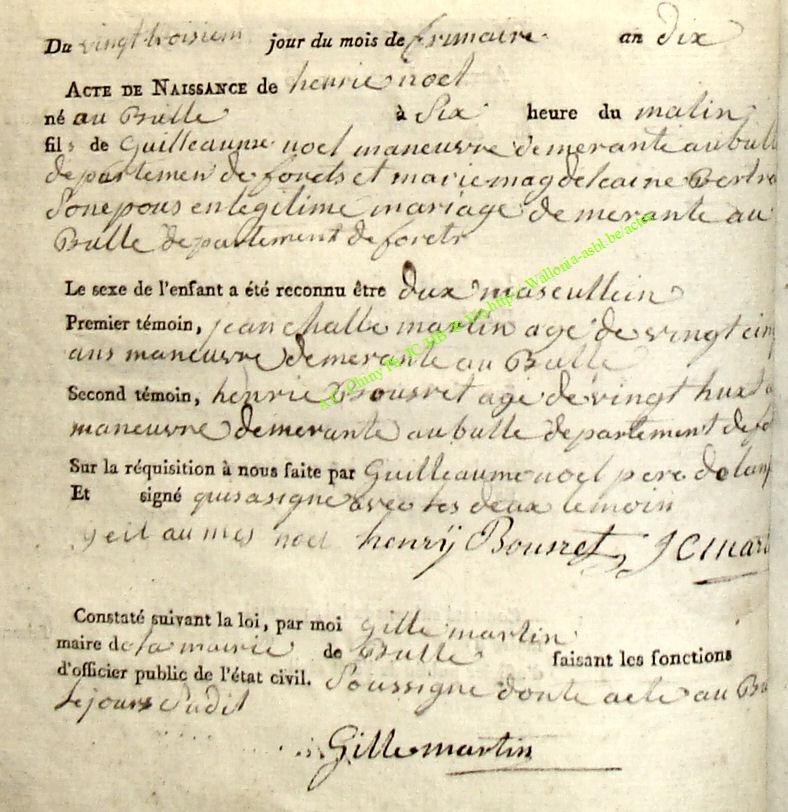 Du vingt troisiem jour du mois de frimaire an dix
ACTE DE NAISSANCE de henrie noel
né au Bulle à Six heure du matin
fils de Guilleaume noel maneuvre demerante au bull
departemen de forets et marie magdelaine Bertra
Son epous en legitime mariage demerante au
Bulle departement de forets
Le sexe de l'enfant a été reconnu être dux mascullein
Premier témoin, jean challe martin age de vingt cinq
ans maneuvre demerante au Bulle
Second témoin, henrie Bousret age de vingt huxt a
maneuvre demerante au bulle departement de fo
Sur la réquisition à nous faite par Guilleaume noel pere de lanf
Et signé quis a signe avec les deux temoin
geil au mes noel henrÿ Bousret J C mart
Constaté suivant la loi, par moi Gille martin
maire de la mairie de Bulle faisant les fonctions
d'officier public de l'état civil. Soussigne donte acte au Bu
le jours Sudit
Gille martin
Wallonia-asbl.be/actes